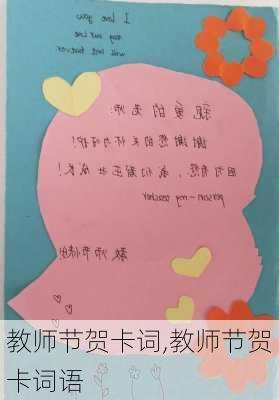 I love you
may our love
will last forever
親愛的老师:
谢谢您的关怀与呵护!
因为有您，我们茁壮成长!
person-my teacher
教师节快乐!
教师节贺卡词,教师节贺
卡词语